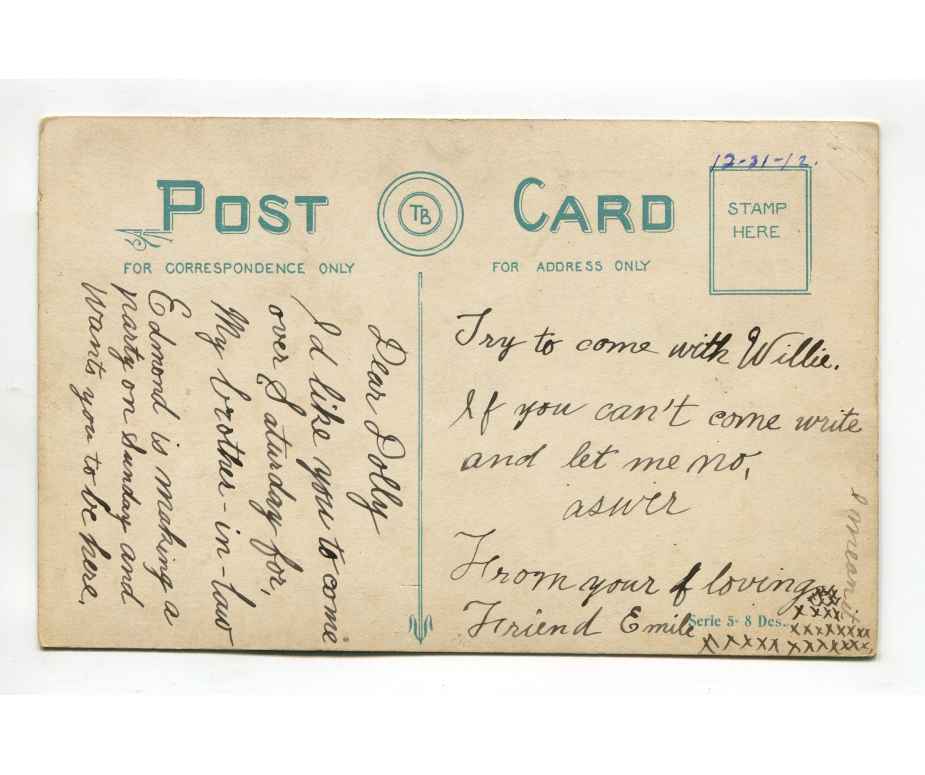 12-31-12.
POST TB CARD
STAMP
HERE
FOR CORRESPONDENCE ONLY
FOR ADDRESS ONLY
Dear Dolly
I'd like you to come
over Saturday for,
My brother-in-law
Edmond is making a
party on Sunday and
Wants you to be here.
Try to come with Willie.
If you can't come write
and let me no,
aswer
From your f loving
Friend Emile
Serie 5- 8 Des.
I mean it
xxx
xxxx
xxxxxxxx
xxxxx xxxxxxx